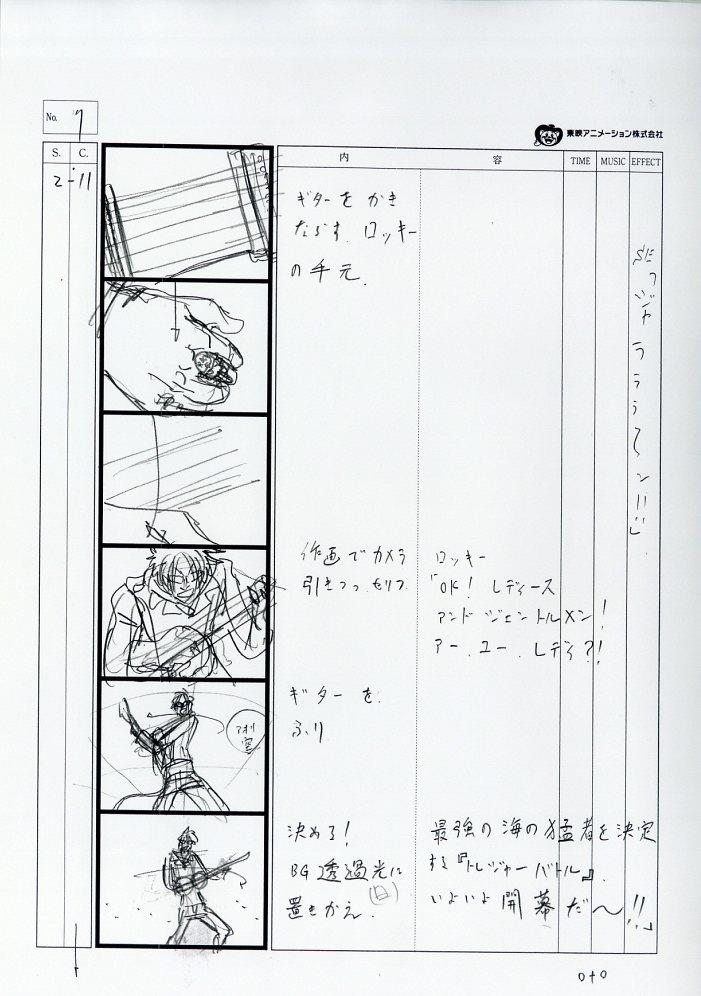 No. 7
東映アニメーション株式会社
S. C. 内 容 TIME MUSIC EFFECT
2-11
ギターを かき
ならす、ロッキー
の手元.
ジャラララ〜ン!!」
作画でカメラ
引きつつ、セリフ
ロッキー
「OK! レディース
アンド ジェントルメン!
アー、ユー、レディ?!
ギターを
ふり
アオリ
決める!
BG 透過光に
(白)
置きかえ.
最強の海の猛者を決定
する『トレジャーバトル』.
いよいよ開幕だ〜!!」
0+0